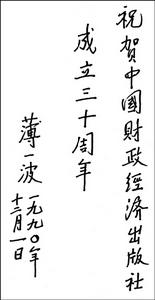 祝贺中國財政經济出版社
成立三十周年
薄一波
一九九〇年
十二月一日